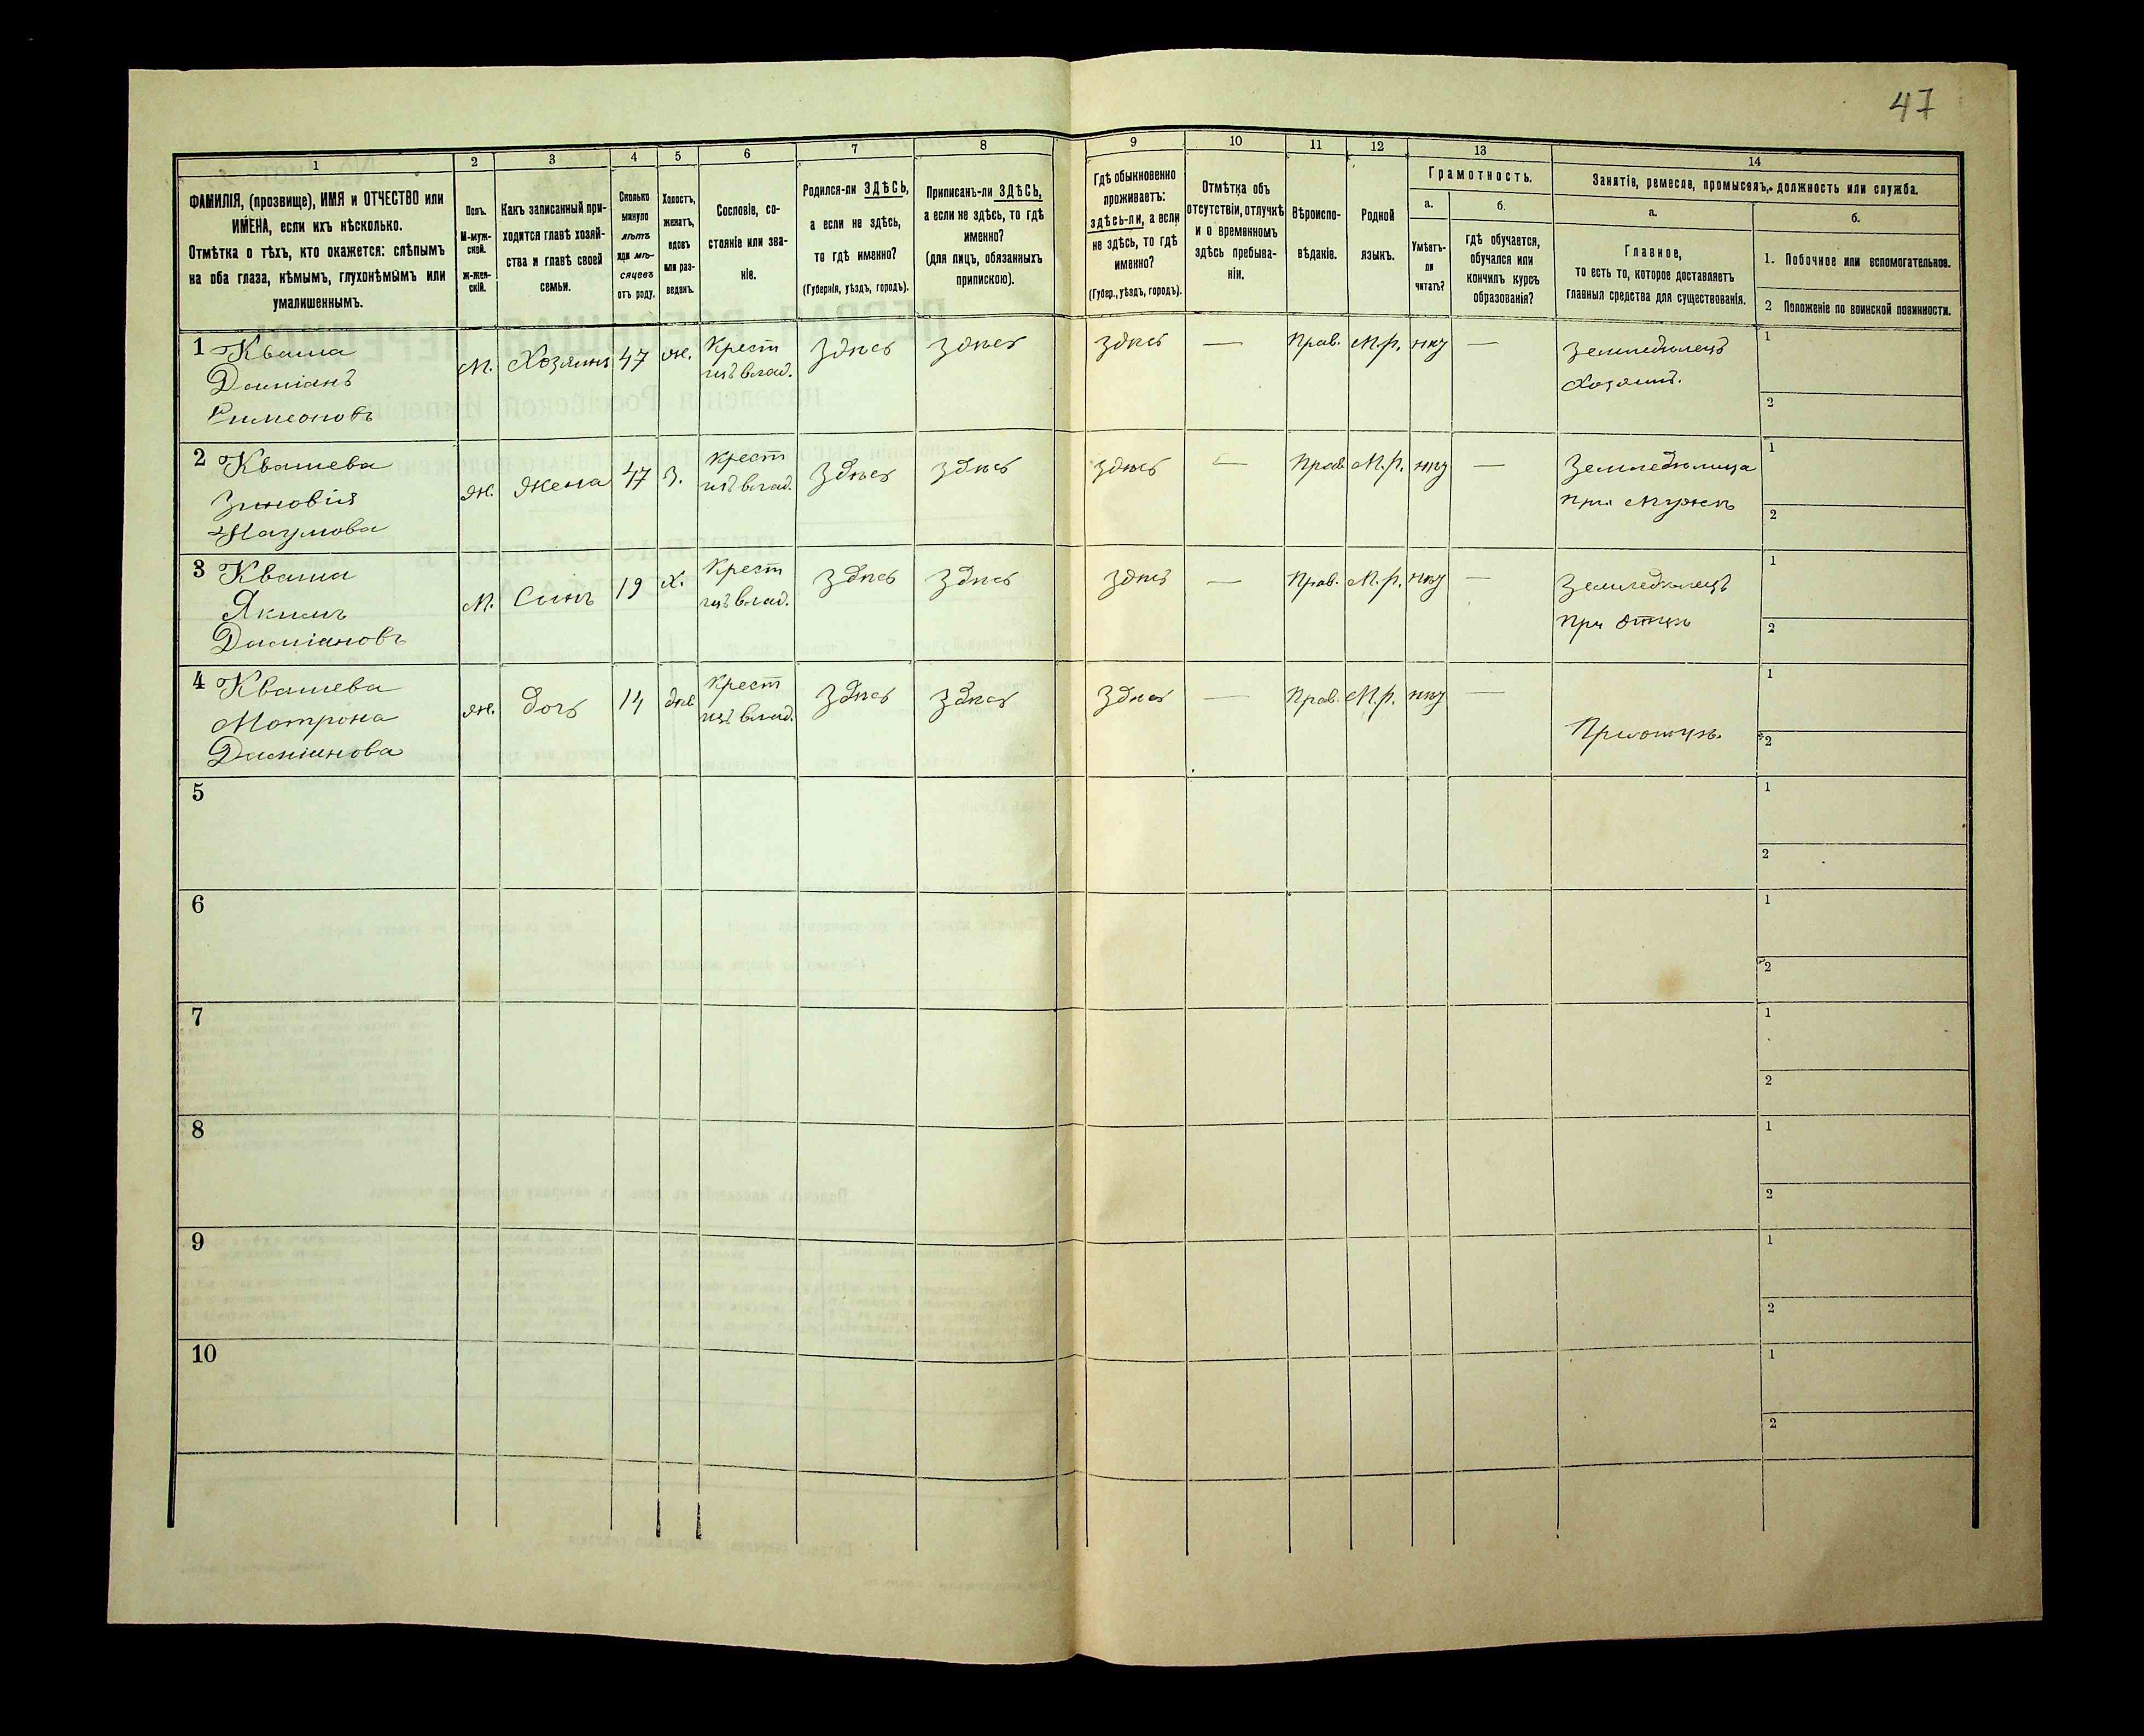 47
1
2
3
4
5
6
7
8
9
10
11
12
13
14
ФАМИЛІЯ, (прозвище), ИМЯ и ОТЧЕСТВО или
ИМЕНА, если ихъ нѣсколько.
Отмѣтка о тѣхъ, кто окажется: слѣпымъ
на оба глаза, нѣмымъ, глухонѣмымъ или
умалишеннымъ.
Полъ.
М-муж-
ской.
Ж-жен-
скій.
Какъ записанный при-
ходится главѣ хозяй-
ства и главѣ своей
семьи.
Сколько
минуло
лѣтъ
или мѣ-
сяцевъ
отъ роду.
Холостъ,
женатъ,
вдовъ
или раз-
веденъ.
Сословіе, со-
стояніе или зва-
ніе.
Родился-ли ЗДѢСЬ,
а если не здѣсь,
то гдѣ именно?
(Губернія, уѣздъ, городъ).
Приписанъ-ли ЗДѢСЬ,
а если не здѣсь, то гдѣ
именно?
(для лицъ, обязанныхъ
припискою).
Гдѣ обыкновенно
проживаетъ:
здѣсь-ли, а если
не здѣсь, то гдѣ
именно?
(Губер., уѣздъ, городъ).
Отмѣтка объ
отсутствіи, отлучкѣ
и о временномъ
здѣсь пребыва-
ніи.
Вѣроиспо-
вѣданіе.
Родной
языкъ.
Грамотность.
а.
Умѣетъ-
ли
читать?
б.
гдѣ обучается,
обучался или
кончилъ курсъ
образованія?
Занятіе, ремесло, промыселъ, должность или служба.
а.
Главное,
то есть то, которое доставляетъ
главныя средства для существованія.
б.
1. Побочное или вспомогательное.
2 Положеніе по воинской повинности.
1 Кваша
Даміанъ
Симеоновъ
М. Хозяинъ 47 ж.
Крест
изъ влад.
Здѣсь Здѣсь Здѣсь — Прав. М.р. нѣтъ —
Земледѣлецъ
Хозяинъ.
1
2
2 Квашева
Зиновія
Наумова
ж. Жена 47 З.
Крест
изъ влад.
Здѣсь Здѣсь Здѣсь — Прав. М.р. нѣтъ —
Земледѣлица
при мужѣ
1
2
3 Кваша
Якимъ
Даміановъ
М. Сынъ 19 Х.
Крест
изъ влад.
Здѣсь Здѣсь Здѣсь — Прав. М.р. нѣтъ —
Земледѣлецъ
при отцѣ
1
2
4 Квашева
Мотрона
Даміанова
ж. дочь 14 дѣв
Крест
изъ влад.
Здѣсь Здѣсь Здѣсь — Прав. М.р. нѣтъ —
При отцѣ.
1
2
5
1
2
6
1
2
7
1
2
8
1
2
9
1
2
10
1
2